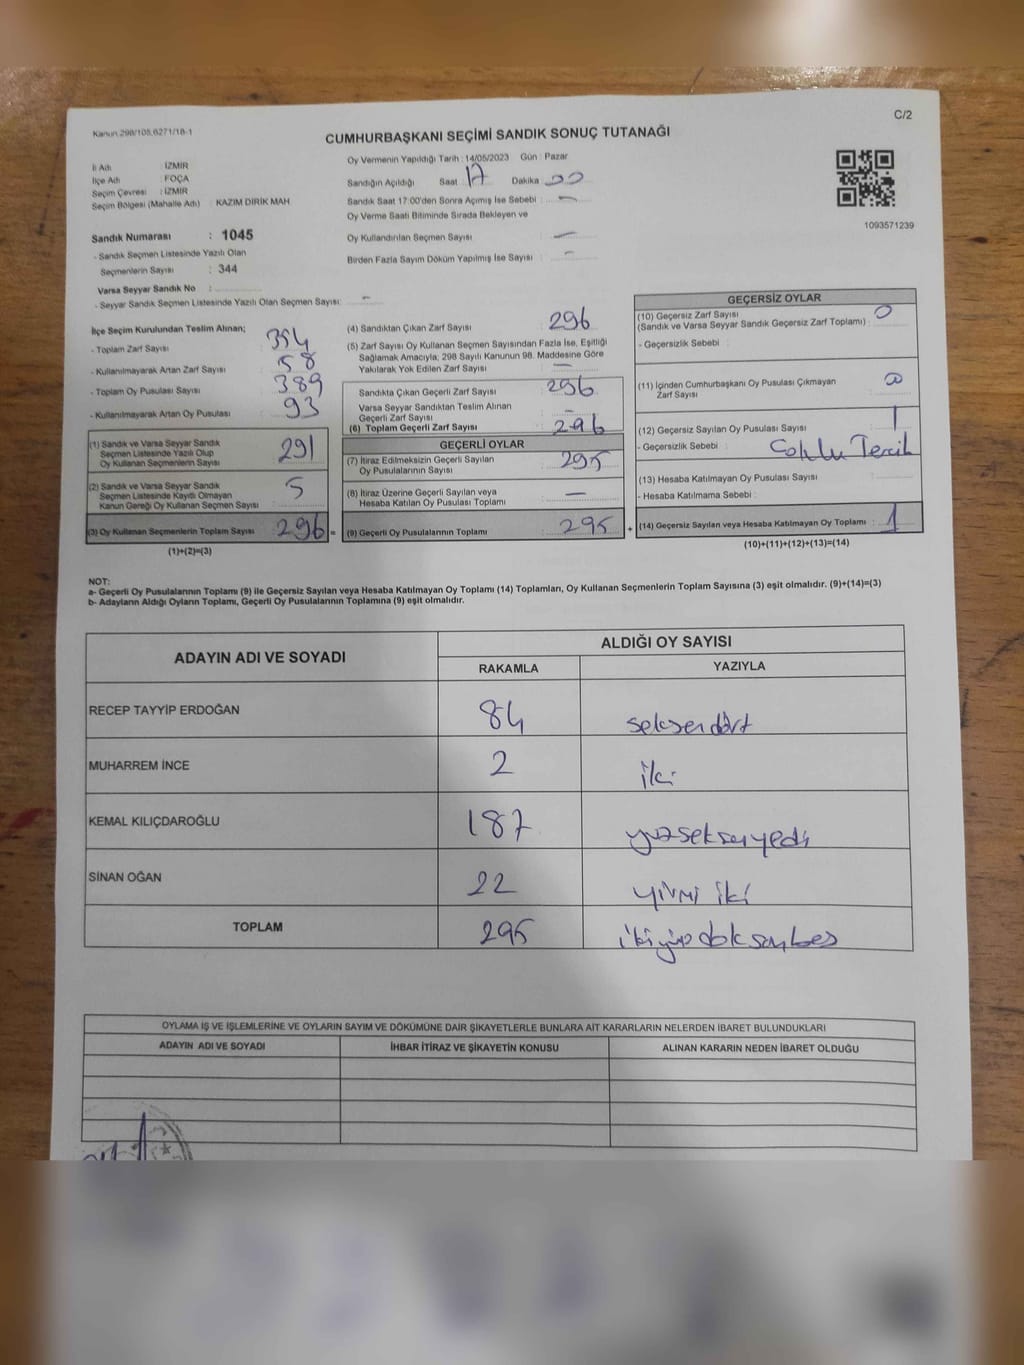 C/2
Kanun 298/105,6271/18-1
CUMHURBAŞKANI SEÇİMİ SANDIK SONUÇ TUTANAĞI
İl Adı : İZMİR
İlçe Adı : FOÇA
Seçim Çevresi : İZMİR
Seçim Bölgesi (Mahalle Adı) : KAZIM DİRİK MAH.
Oy Vermenin Yapıldığı Tarih : 14/05/2023 Gün : Pazar
Sandığın Açıldığı Saat 17 Dakika 00
Sandık Saat 17:00'den Sonra Açımış İse Sebebi : -
Oy Verme Saati Bitiminde Sırada Bekleyen ve
Oy Kullandırılan Seçmen Sayısı : -
Birden Fazla Sayım Döküm Yapılmış İse Sayısı : -
1093571239
Sandık Numarası : 1045
- Sandık Seçmen Listesinde Yazılı Olan
Seçmenlerin Sayısı : 344
Varsa Seyyar Sandık No :
- Seyyar Sandık Seçmen Listesinde Yazılı Olan Seçmen Sayısı: -
İlçe Seçim Kurulundan Teslim Alınan;
- Toplam Zarf Sayısı : 354
- Kullanılmayarak Artan Zarf Sayısı : 58
- Toplam Oy Pusulası Sayısı : 389
- Kullanılmayarak Artan Oy Pusulası : 93
(1) Sandık ve Varsa Seyyar Sandık
Seçmen Listesinde Yazılı Olup
Oy Kullanan Seçmenlerin Sayısı : 291
(2) Sandık ve Varsa Seyyar Sandık
Seçmen Listesinde Kayıtlı Olmayan
Kanun Gereği Oy Kullanan Seçmen Sayısı : 5
(3) Oy Kullanan Seçmenlerin Toplam Sayısı : 296 =
(1)+(2)=(3)
(4) Sandıktan Çıkan Zarf Sayısı : 296
(5) Zarf Sayısı Oy Kullanan Seçmen Sayısından Fazla İse, Eşitliği
Sağlamak Amacıyla; 298 Sayılı Kanunun 98. Maddesine Göre
Yakılarak Yok Edilen Zarf Sayısı : -
Sandıkta Çıkan Geçerli Zarf Sayısı : 296
Varsa Seyyar Sandıktan Teslim Alınan
Geçerli Zarf Sayısı : -
(6) Toplam Geçerli Zarf Sayısı : 296
GEÇERLİ OYLAR
(7) İtiraz Edilmeksizin Geçerli Sayılan
Oy Pusulalarının Sayısı : 295
(8) İtiraz Üzerine Geçerli Sayılan veya
Hesaba Katılan Oy Pusulası Toplamı : -
(9) Geçerli Oy Pusulalarının Toplamı : 295 +
GEÇERSİZ OYLAR
(10) Geçersiz Zarf Sayısı : 0
(Sandık ve Varsa Seyyar Sandık Geçersiz Zarf Toplamı) :
- Geçersizlik Sebebi :
(11) İçinden Cumhurbaşkanı Oy Pusulası Çıkmayan
Zarf Sayısı : 0
(12) Geçersiz Sayılan Oy Pusulası Sayısı : 1
- Geçersizlik Sebebi : Çoklu Tercih
(13) Hesaba Katılmayan Oy Pusulası Sayısı :
- Hesaba Katılmama Sebebi :
(14) Geçersiz Sayılan veya Hesaba Katılmayan Oy Toplamı : 1
(10)+(11)+(12)+(13)=(14)
NOT:
a- Geçerli Oy Pusulalarının Toplamı (9) ile Geçersiz Sayılan veya Hesaba Katılmayan Oy Toplamı (14) Toplamları, Oy Kullanan Seçmenlerin Toplam Sayısına (3) eşit olmalıdır. (9)+(14)=(3)
b- Adayların Aldığı Oyların Toplamı, Geçerli Oy Pusulalarının Toplamına (9) eşit olmalıdır.
ADAYIN ADI VE SOYADI
ALDIĞI OY SAYISI
RAKAMLA YAZIYLA
RECEP TAYYİP ERDOĞAN 84 seksendört
MUHARREM İNCE 2 iki
KEMAL KILIÇDAROĞLU 187 yüzseksenyedi
SİNAN OĞAN 22 yirmi iki
TOPLAM 295 ikiyüzdoksanbeş
OYLAMA İŞ VE İŞLEMLERİNE VE OYLARIN SAYIM VE DÖKÜMÜNE DAİR ŞİKAYETLERLE BUNLARA AİT KARARLARIN NELERDEN İBARET BULUNDUKLARI
ADAYIN ADI VE SOYADI İHBAR İTİRAZ VE ŞİKAYETİN KONUSU ALINAN KARARIN NEDEN İBARET OLDUĞU